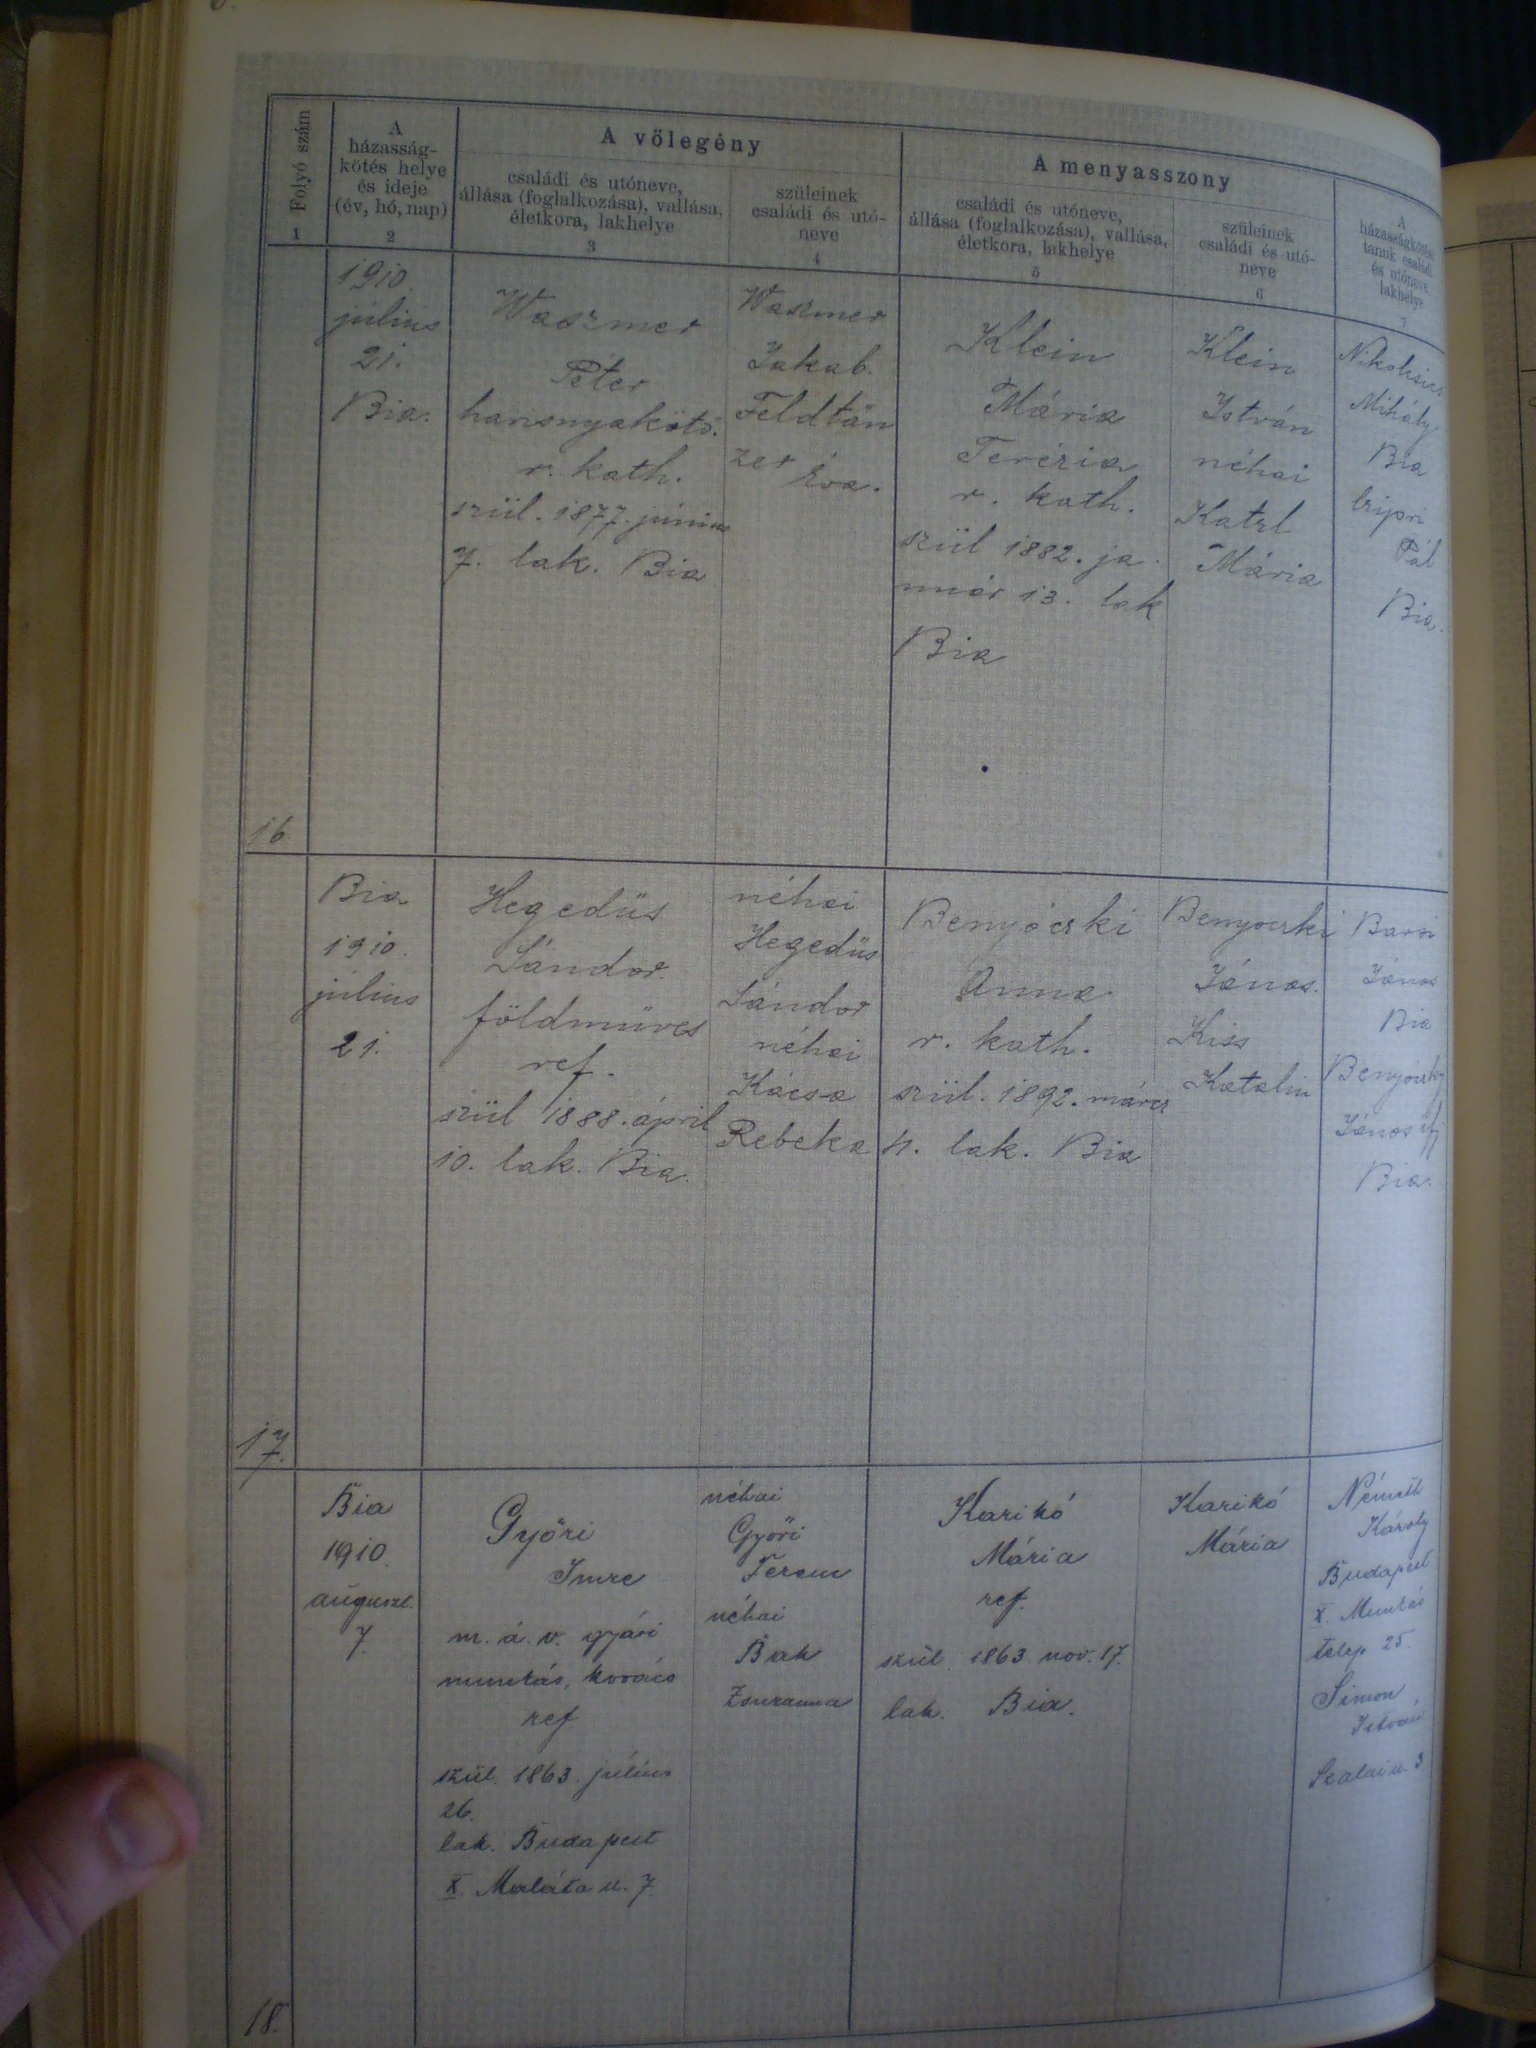 Folyó szám
1
A
házasság-
kötés helye
és ideje
(év, hó, nap)
2
A vőlegény
családi és utóneve,
állása (foglalkozása), vallása,
életkora, lakhelye
3
szüleinek
családi és utó-
neve
4
A menyasszony
családi és utóneve,
állása (foglalkozása), vallása,
életkora, lakhelye
5
szüleinek
családi és utó-
neve
6
A
házasságkötési
tanuk családi
és utóneve,
lakhelye
7
16.
1910.
július
21.
Bia.
Waszmer
Péter
harisnyakötő.
r. kath.
szül. 1877. június
7. lak. Bia
Waszmer
Jakab.
Feldtän
zer Éva.
Klein
Mária
Terézia
r. kath.
szül 1882. ja
nuár 13. lak
Bia
Klein
István
néhai
Katzl
Mária
Mihály
Bia
Pál
Bia.
17.
Bia
1910.
július
21.
Hegedüs
Sándor
földműves
ref.
szül 1888. ápril
10. lak. Bia.
néhai
Hegedüs
Sándor
néhai
Kácsa
Rebeka
Benyóczki
Anna
r. kath.
szül. 1892. márcz
lak. Bia
Benyoczki
János.
Kiss
Katalin
Barsi
János
Bia
Benyóczky
János ifj
Bia.
18.
Bia
1910.
auguszt.
7.
Győri
Imre
m. á. v. gyári
munkás, kovács
ref
szül. 1863. július
26.
lak. Budapest
X. Maláta u. 7.
néhai
Győri
Ferenc
néhai
Bak
Zsuzanna
Karikó
Mária
ref.
szül. 1863 nov. 17.
lak. Bia.
Karikó
Mária
Németh
Károly
Budapest
X. Munkás
telep 25.
Simon
István
Szalai u. 3.